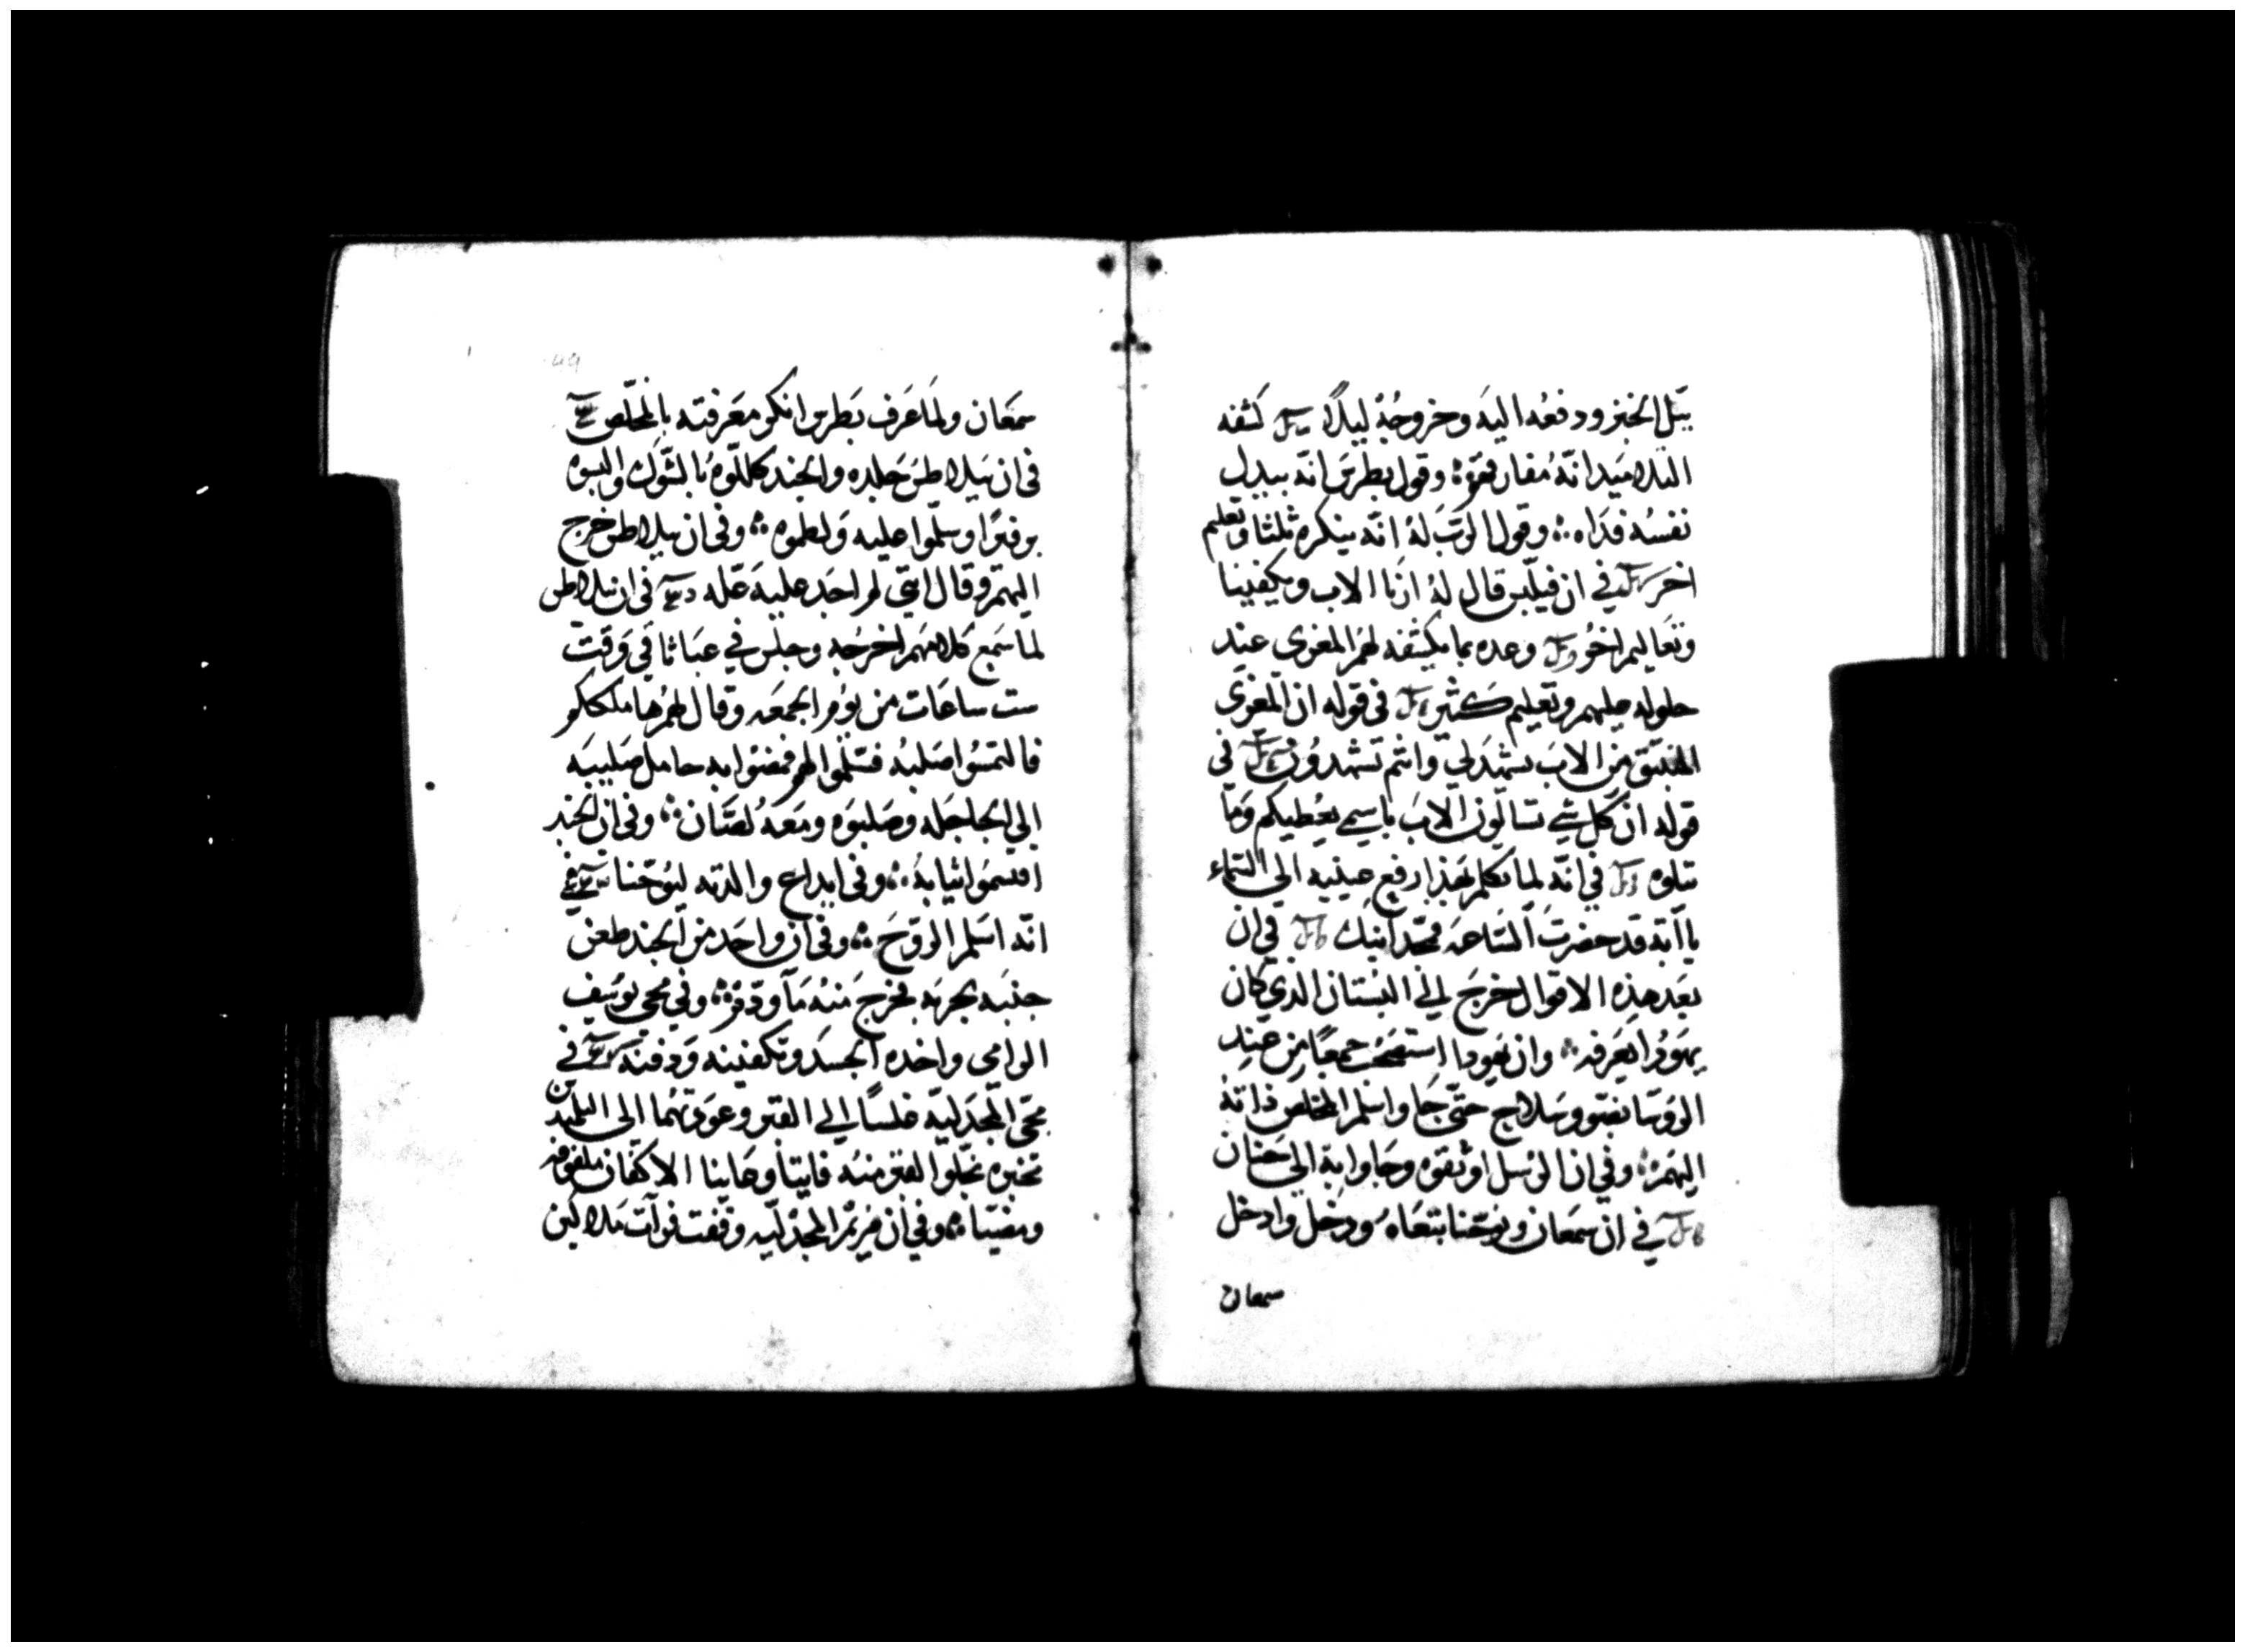 يبل الخبز ودفعه اليه وخروجه ليلاً كشفه
التلاميد انه مفارقهم وقول بطرس انه يبدل
نفسه فداه وقول الرّب له انه ينكره ثلثا وتعليم
اخر في ان فيلبس قال له ارنا الاب ويكفينا
وتعاليم اخر وعده بما يكشفه لهم المعزى عند
حلوله عليهم وتعليم كثير في قوله ان المعزى
المنبثق من الاب يشهد لي وانتم تشهدون في
قوله ان كل شي تسالون الاب باسمي يعطيكم وما
يتلوه في انه لما تكلم بهذا رفع عينيه الي السماء
يا ابة قد حضرت الساعه فمجد ابنك في ان
بعد هذه الاقوال خرج الي البستان الدي كان
يهودا يعرفه وان يهودا استصحب جمعا من عند
الروسا بضو وسلاح حتى جا واسلم المخلص ذاته
اليهم وفي ان الرسل اوثقوه وجاوا به الى حنان
في ان سمعان ويوحنا بتعاه ودخل وادخل
سمعان
49
سمعان ولما عرف بطرس انكر معرفته بالمخلص
في ان بيلاطس جلده والجند كللوه بالشوك والبسوه
برفيرا وسلموا عليه ولطموه وفي ان بيلاطس خرج
اليهم وقال انني لم اجد عليه عله في ان بيلاطس
لما سمع كلامهم اخرجه وجلس في عباثا في وقت
ست ساعات من يوم الجمعه وقال لهم ها ملككم
فالتمسوا صلبه فسلموا لهم فمضوا به حامل صليبه
الي الجاجله وصلبوه ومعه لصان وفي ان الجند
اقتسموا ثيابه وفي ايداع والدته ليوحنا في
انه اسلم الروح وفي ان واحد من الجند طعن
جنبه بحربه فخرج منه مآ ودم وفي مجي يوسف
الرامي واخده الجسد وتكفينه ودفنه في
مجي المجدليه غلسا الي القبر وعودتهما الى التلميدين
تخبره بخلو القبر منه فاتيا وعاينا الاكفان ملفوفه
ومضيا وفي ان مريم المجدليه وقفت فرات ملاكين